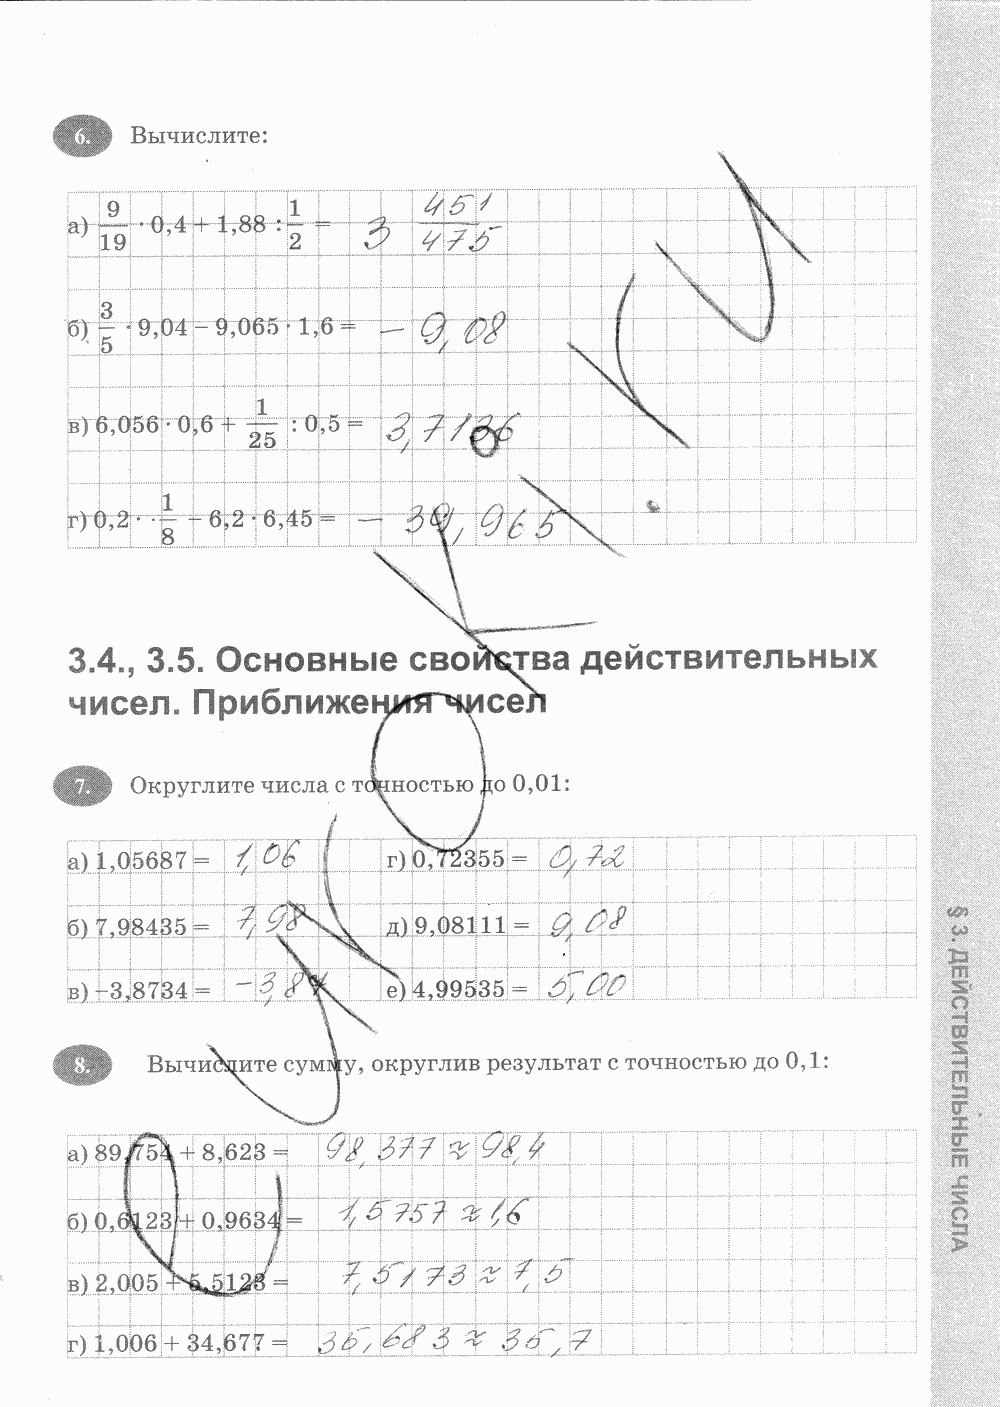 6. Вычислите:
а) 9/19 · 0,4 + 1,88 : 1/2 = 3 451/475
б) 3/5 · 9,04 − 9,065 · 1,6 = − 9,08
в) 6,056 · 0,6 + 1/25 : 0,5 = 3,7136
г) 0,2 · 1/8 − 6,2 · 6,45 = − 39,965
3.4., 3.5. Основные свойства действительных
чисел. Приближения чисел
7. Округлите числа с точностью до 0,01:
а) 1,05687 = 1,06 г) 0,72355 = 0,72
б) 7,98435 = 7,98 д) 9,08111 = 9,08
в) −3,8734 = −3,87 е) 4,99535 = 5,00
8. Вычислите сумму, округлив результат с точностью до 0,1:
а) 89,754 + 8,623 = 98,377 ≈ 98,4
б) 0,6123 + 0,9634 = 1,5757 ≈ 1,6
в) 2,005 + 5,5123 = 7,5173 ≈ 7,5
г) 1,006 + 34,677 = 35,683 ≈ 35,7
§ 3. ДЕЙСТВИТЕЛЬНЫЕ ЧИСЛА